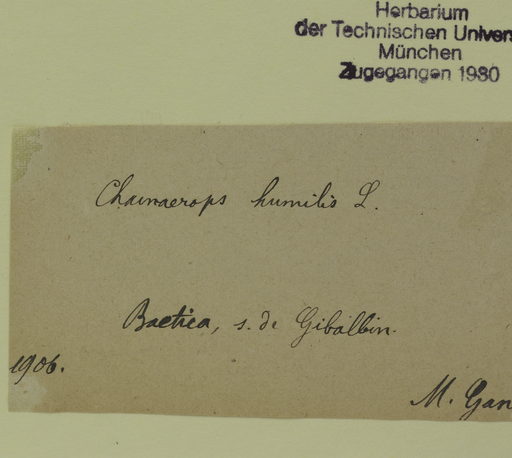 Herbarium
der Technischen Univers
München
Zugegangen 1980
Chamaerops humilis L.
Baetica, s. de Gibalbin.
1906.
M. Gan